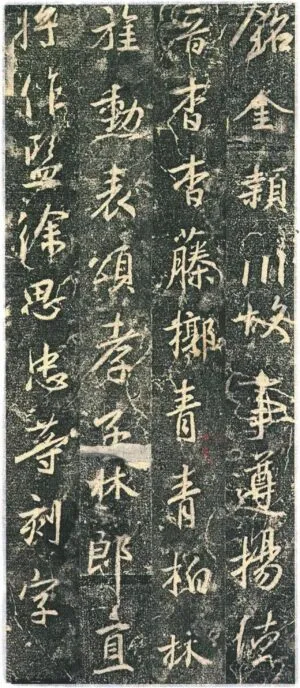 銘金頴川故事遵揚德
音杳杳藤槨青青柏林
旌動表頌孝子林郎直
將作監徐思忠等刻字